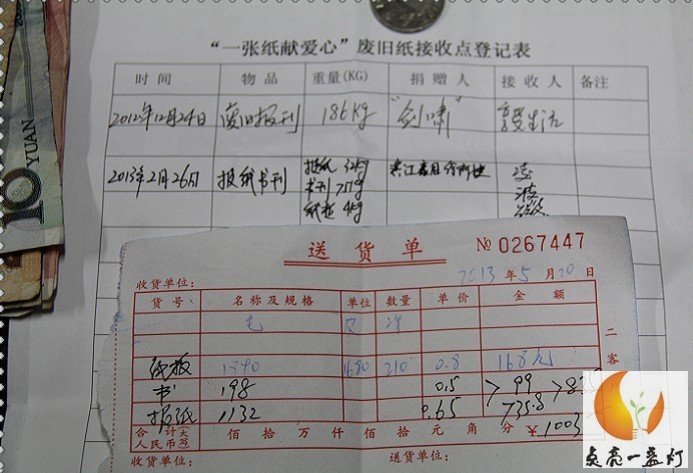 “一张纸献爱心”废旧纸接收点登记表
时间 物品 重量(KG) 捐赠人 接收人 备注
2012年12月24日 废旧报刊 186Kg “剑啸” 享受生活
2013年2月26日 报纸书刊 报纸 书刊 纸板
10 YUAN
送货单 № 0267447
2013年5月20日
收货单位：
货号 名称及规格 单位 数量 单价 金额
毛 皮 净
纸板 1690 210 0.8 168元
书 198 0.5 > 99
报纸 1132 0.65 735.8
合计(大写)人民币 佰 拾 万 仟 佰 拾 元 角 分 ¥1003
收货单位： 送货单位：
二客
点亮一盏灯